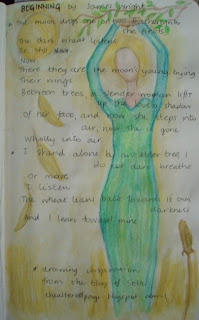 BEGINNING by James Wright
• the moon drops one or two feathers into
the fields
The dark wheat listens
Be still
Now
There they are, the moon's young, trying
Their wings
Between trees, a slender woman lifts
up the lovely shadow
Of her face, and now she steps into
air, now she is gone
Wholly, into air
• I stand alone by an elder tree, I
do not dare breathe
Or move
I listen
The wheat leans back towards its own
darkness
And I lean toward mine
* drawing inspiration
from the blog of